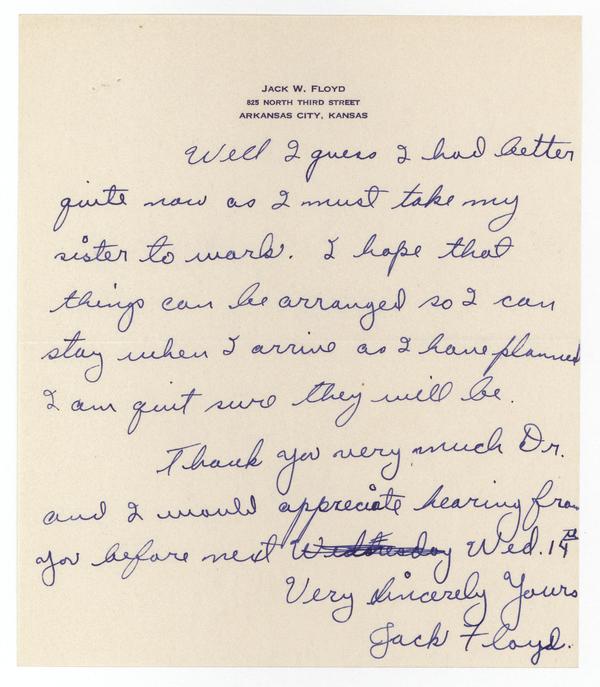 JACK W. FLOYD
825 NORTH THIRD STREET
ARKANSAS CITY, KANSAS
Well I guess I had better
quite now as I must take my
sister to work. I hope that
things can be arranged so I can
stay when I arrive as I have planned
I am quit sure they will be.
Thank you very much Dr.
and I would appreciate hearing from
you before next Wed. 14th
Very Sincerely Yours
Jack Floyd.